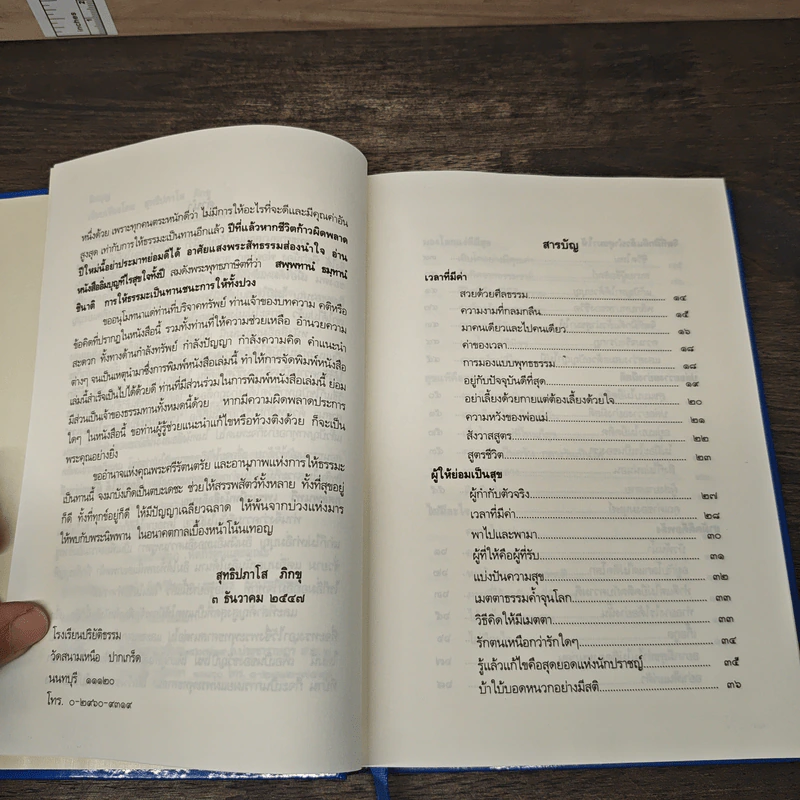 หนึ่งด้วย เพราะทุกคนตระหนักดีว่า ไม่มีการให้อะไรที่จะดีและมีคุณค่าอัน
สูงสุด เท่ากับการให้ธรรมะเป็นทานอีกแล้ว ปีที่แล้วหากชีวิตก้าวผิดพลาด
ปีใหม่นี้อย่าประมาทย่อมดีได้ อาศัยแสงพระสัทธรรมส่องนำใจ อ่าน
หนังสืออิ่มบุญที่ไรสุขใจทั้งปี สมดังพระพุทธภาษิตที่ว่า สพฺพทานํ ธมฺมทานํ
ชินาติ การให้ธรรมะเป็นทานชนะการให้ทั้งปวง
ขออนุโมทนาแด่ท่านที่บริจาคทรัพย์ ท่านเจ้าของบทความ คดีหรือ
ข้อคิดที่ปรากฏในหนังสือนี้ รวมทั้งท่านที่ให้ความช่วยเหลือ อำนวยความ
สะดวก ทั้งทางด้านกำลังทรัพย์ กำลังปัญญา กำลังความคิด คำแนะนำ
ต่างๆ จนเป็นเหตุนำมาซึ่งการพิมพ์หนังสือเล่มนี้ ทำให้การจัดพิมพ์หนังสือ
เล่มนี้สำเร็จเป็นไปได้ด้วยดี ท่านที่มีส่วนร่วมในการพิมพ์หนังสือเล่มนี้ ย่อม
มีส่วนเป็นเจ้าของธรรมทานทั้งหมดนี้ด้วย หากมีความผิดพลาดประการ
ใดๆ ในหนังสือนี้ ขอท่านผู้รู้ช่วยแนะนำแก้ไขหรือท้วงติงด้วย ก็จะเป็น
พระคุณอย่างยิ่ง
ขออำนาจแห่งคุณพระศรีรัตนตรัย และอานุภาพแห่งการให้ธรรมะ
เป็นทานนี้ จงมาบังเกิดเป็นตบะเดชะ ช่วยให้สรรพสัตว์ทั้งหลาย ทั้งที่สุขอยู่
ก็ดี ทั้งที่ทุกข์อยู่ก็ดี ให้มีปัญญาเฉลียวฉลาด ให้พ้นจากบ่วงแห่งมาร
ให้พบกับพระนิพพาน ในอนาคตกาลเบื้องหน้าโน้นเทอญ
สุทธิปภาโส ภิกขุ
๓ ธันวาคม ๒๕๔๗
โรงเรียนปริยัติธรรม
วัดสนามเหนือ ปากเกร็ด
นนทบุรี ๑๑๑๒๐
โทร. ๐-๒๙๖๐-๙๓๑๙
สารบัญ
เวลาที่มีค่า
สวยด้วยศีลธรรม ๑๔
ความงามที่กลมกลืน ๑๕
มาคนเดียวและไปคนเดียว ๑๖
ค่าของเวลา ๑๘
การมองแบบพุทธธรรม ๑๘
อยู่กับปัจจุบันดีที่สุด ๑๙
อย่าเลี้ยงด้วยกายแต่ต้องเลี้ยงด้วยใจ ๒๐
ความหวังของพ่อแม่ ๒๑
สังวาสสูตร ๒๒
สูตรชีวิต ๒๓
ผู้ให้ย่อมเป็นสุข
ผู้กำกับตัวจริง ๒๗
เวลาที่มีค่า ๒๘
พาไปและพามา ๓๐
ผู้ที่ให้คือผู้ที่รับ ๓๑
แบ่งปันความสุข ๓๒
เมตตาธรรมค้ำจุนโลก ๓๓
วิธีคิดให้มีเมตตา ๓๓
รักตนเหนือกว่ารักใดๆ ๓๔
รู้แล้วแก้ไขคือสุดยอดแห่งนักปราชญ์ ๓๕
บ้าใบ้บอดหนวกอย่างมีสติ ๓๖